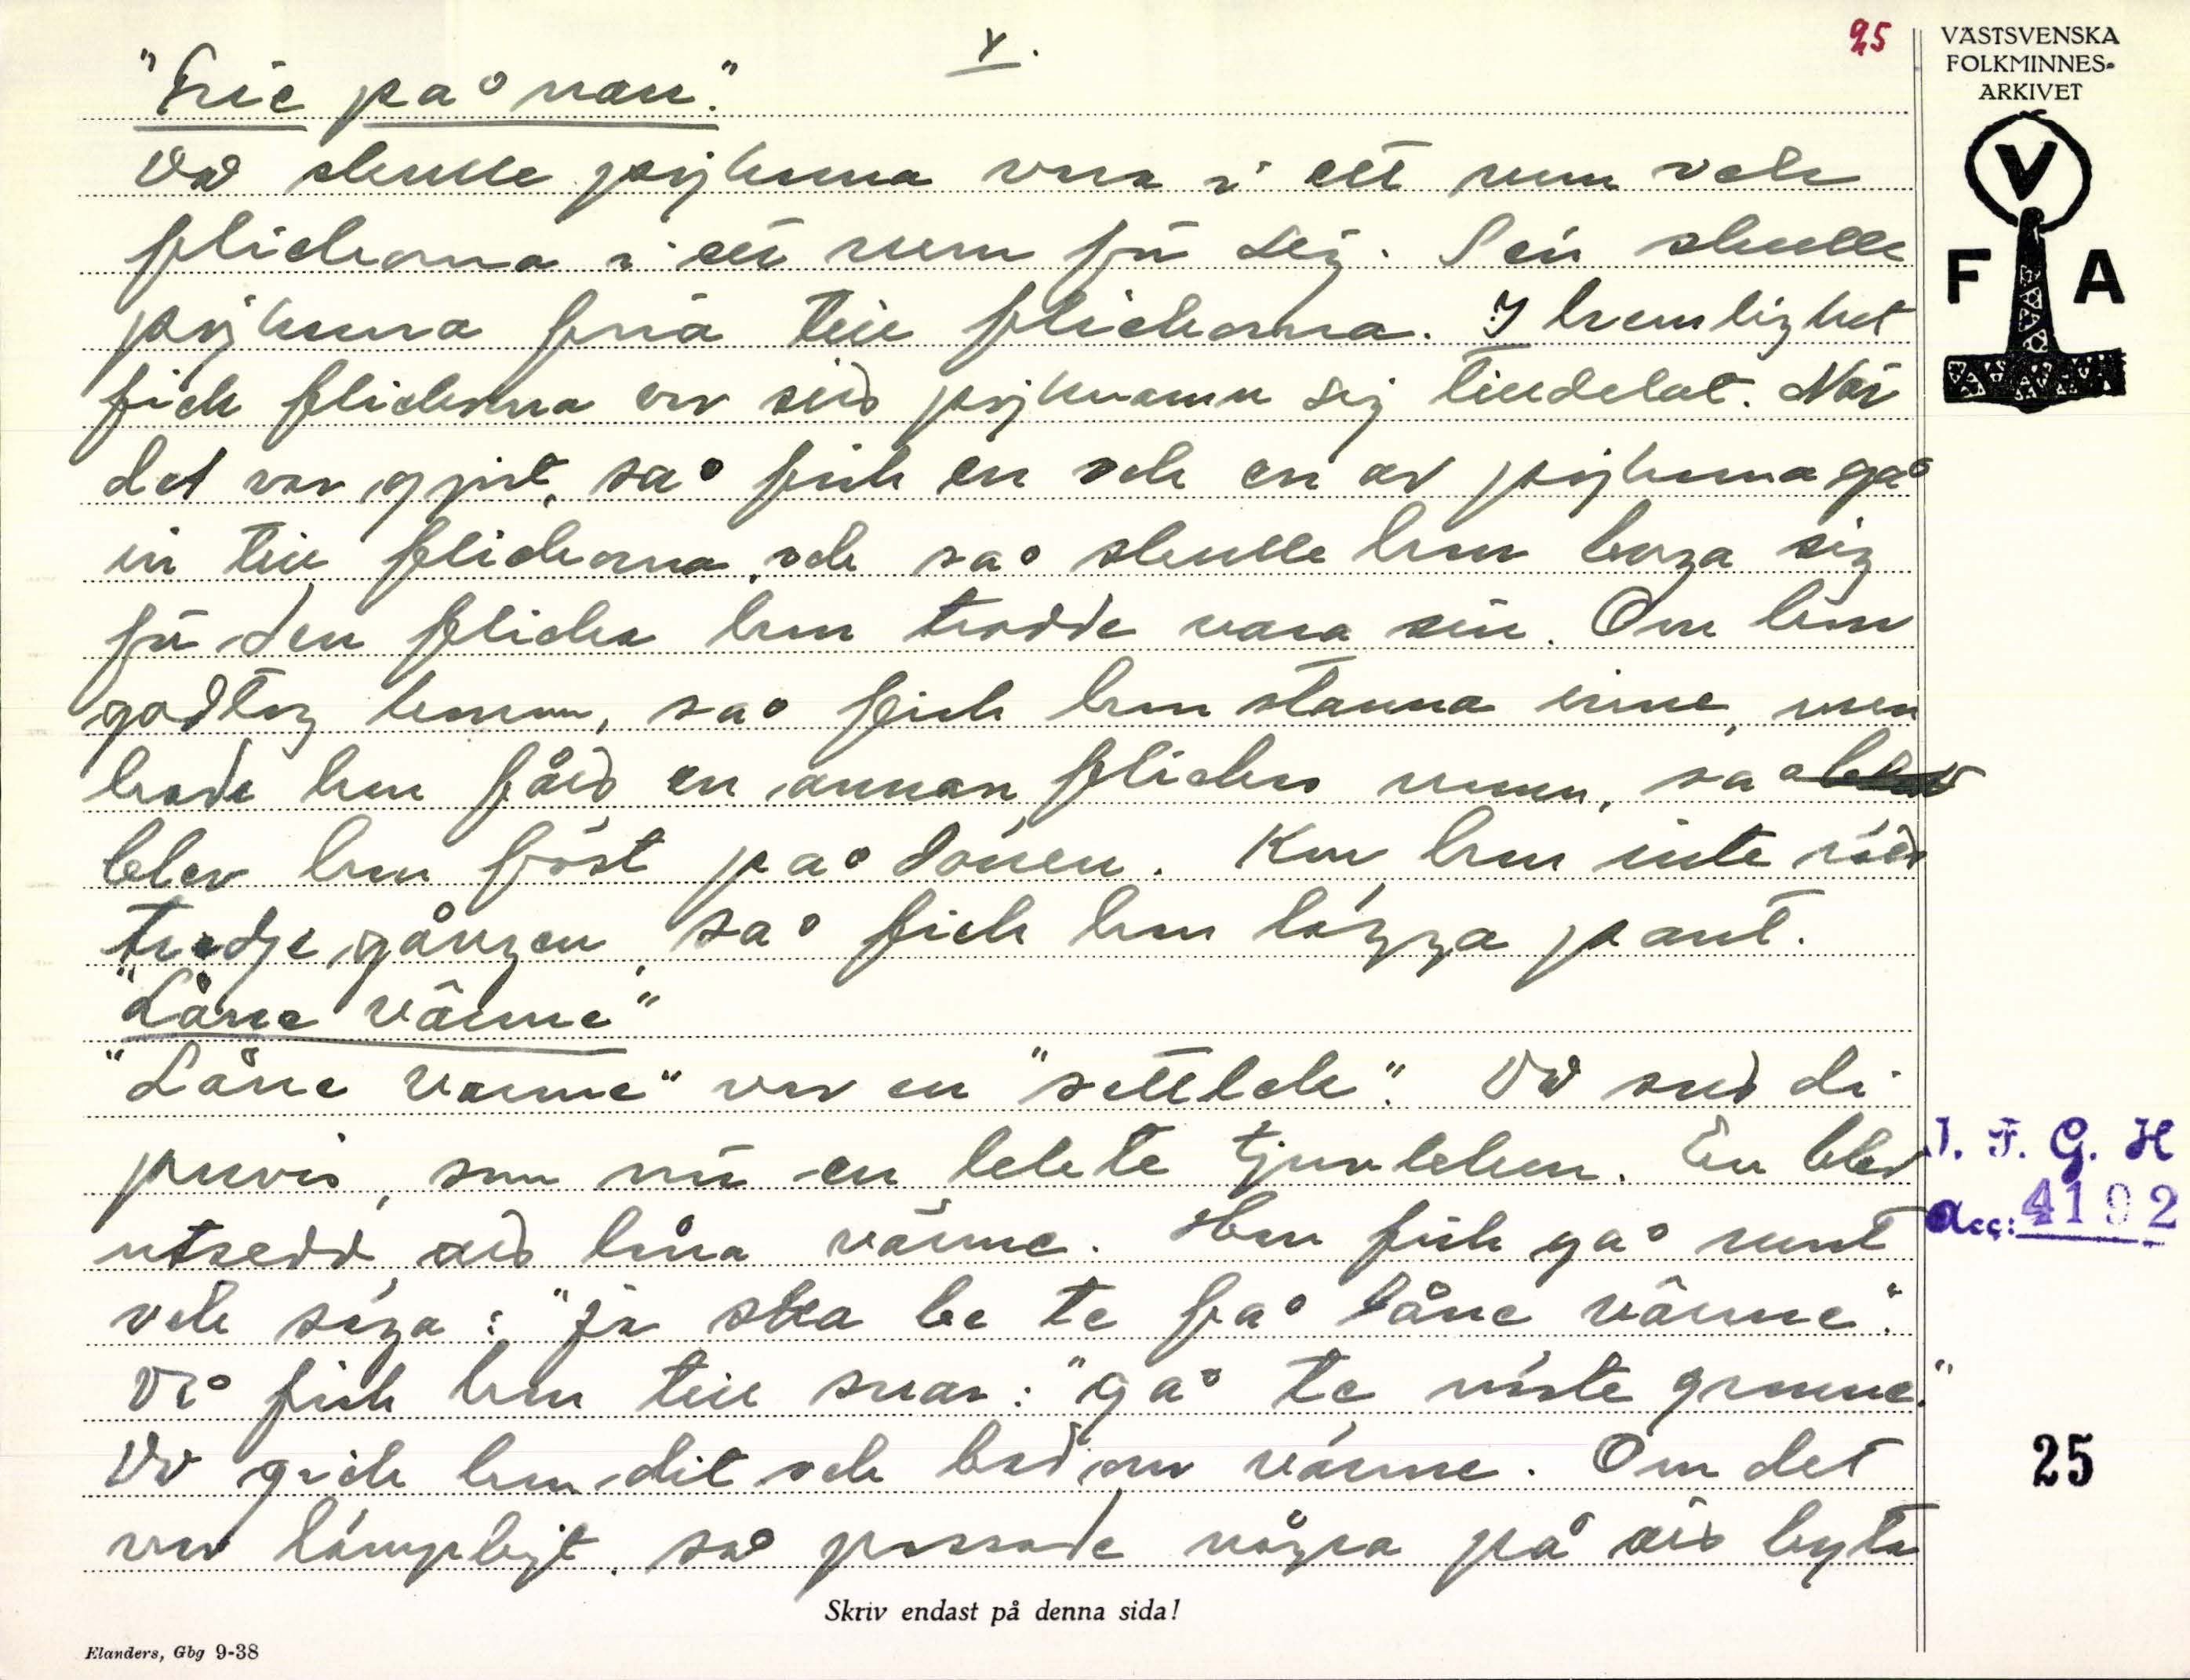 25
VÄSTSVENSKA
FOLKMINNES-
ARKIVET
V
F A
"Frie på nan."
Då skulle pojkarna vara i ett rum och
flickorna i ett rum för sig. Sen skulle
pojkarna fria till flickorna. I hemlighet
fick flickorna var sin pojknamn sig tilldelat. När
det var gjort, så fick en och en av pojkarna gå
in till flickorna, och så skulle han buga sig
för den flicka han trodde vara sin. Om hon
godtog honom, så fick han stanna inne, men
hade han fått en annan flickas namn, så
blev han föst på dörren. Kom han inte rätt
tredje gången, så fick han lägga pant.
"Låne värme"
"Låne värme" var en "settlek". Då satt di
parvis, som när en lekte tjuvleken. En blev
utsedd att låna värme. Han fick gå runt
och säga: "Ja ska be te få låne värme".
Då fick han till svar: "gå te näste granne."
Då gick han dit och bad om värme. Om det
var lämpligt, så passade några på att byta
J. F. G. H
Acc: 4192
25
Skriv endast på denna sida!
Elanders, Gbg 9-38